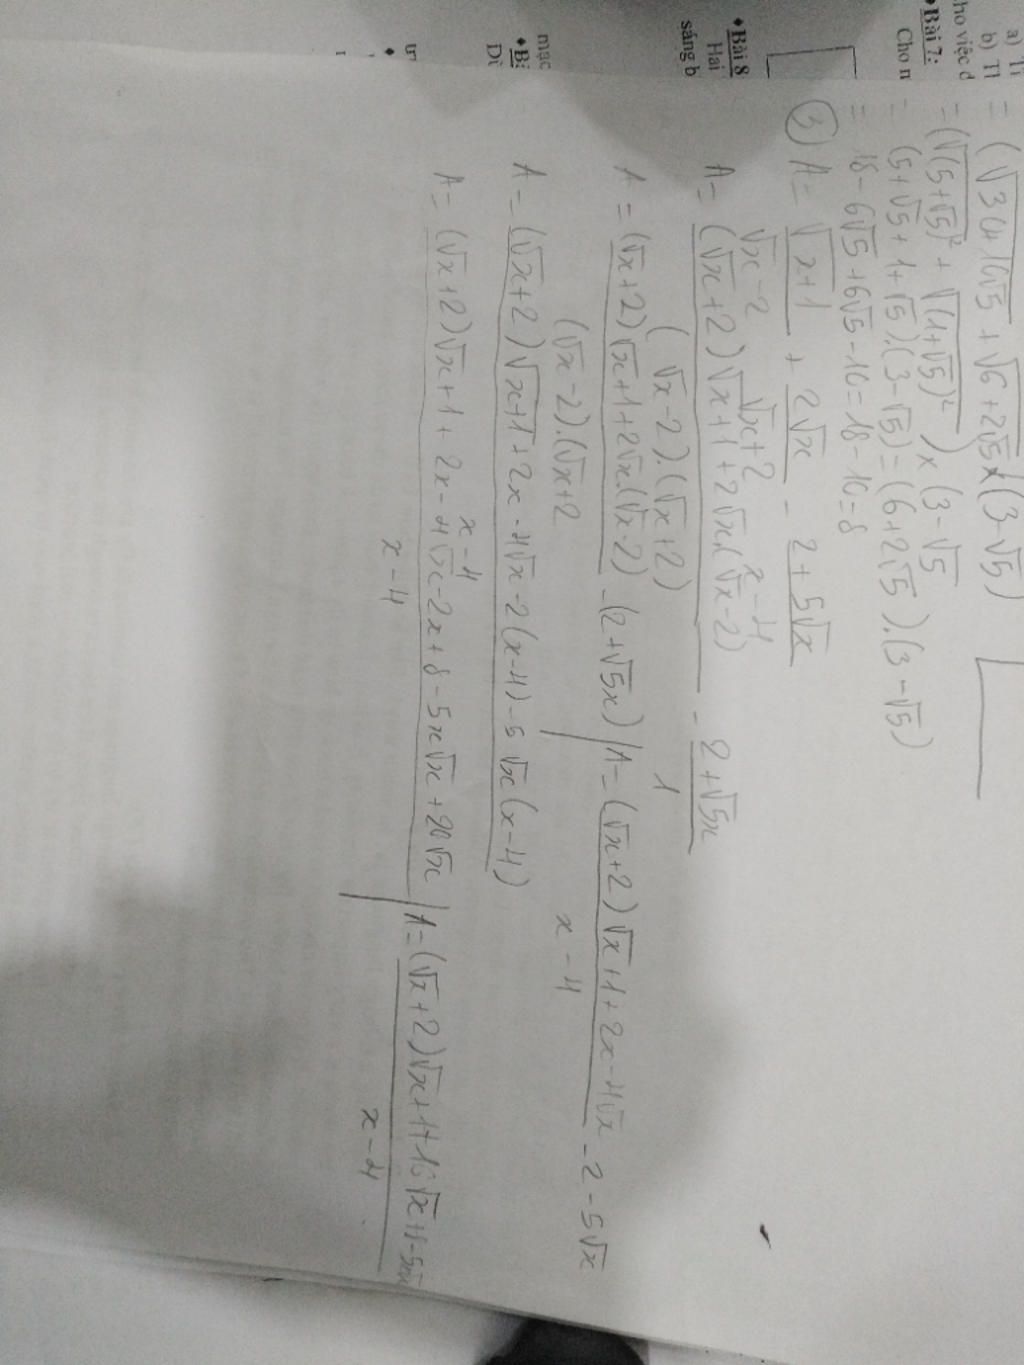 a)
b) T
ho việc d
♦Bài 7:
Cho n
♦Bài 8
Hai
sáng b
mạc
Dù
= (√30+10√5 + √6+2√5)×(3-√5)
= (√(5+√5)² + √(1+√5)²) × (3-√5
= (5+√5+1+√5).(3-√5) = (6+2√5).(3-√5)
= 18-6√5+6√5-10=18-10=8
③ A = √x+1 / √x-2 + 2√x / √x+2 - 2+5√x / x-4
A = (√x+2)√x+1+2√x.(√x-2) / (√x-2).(√x+2) - 2+√5x / 1
A = (√x+2)√x+1+2√x(√x-2) / (√x-2).(√x+2 - (2+√5x) | A = (√x+2)√x+1+2x-4√x / x-4 - 2-5√x
A = (√x+2)√x+1+2x-4√x-2(x-4)-5√x(x-4) / x-4
A = (√x+2)√x+1+2x-4√x-2x+8-5x√x+20√x / x-4 | A = (√x+2)√x+1+16√x+8-5x√x / x-4